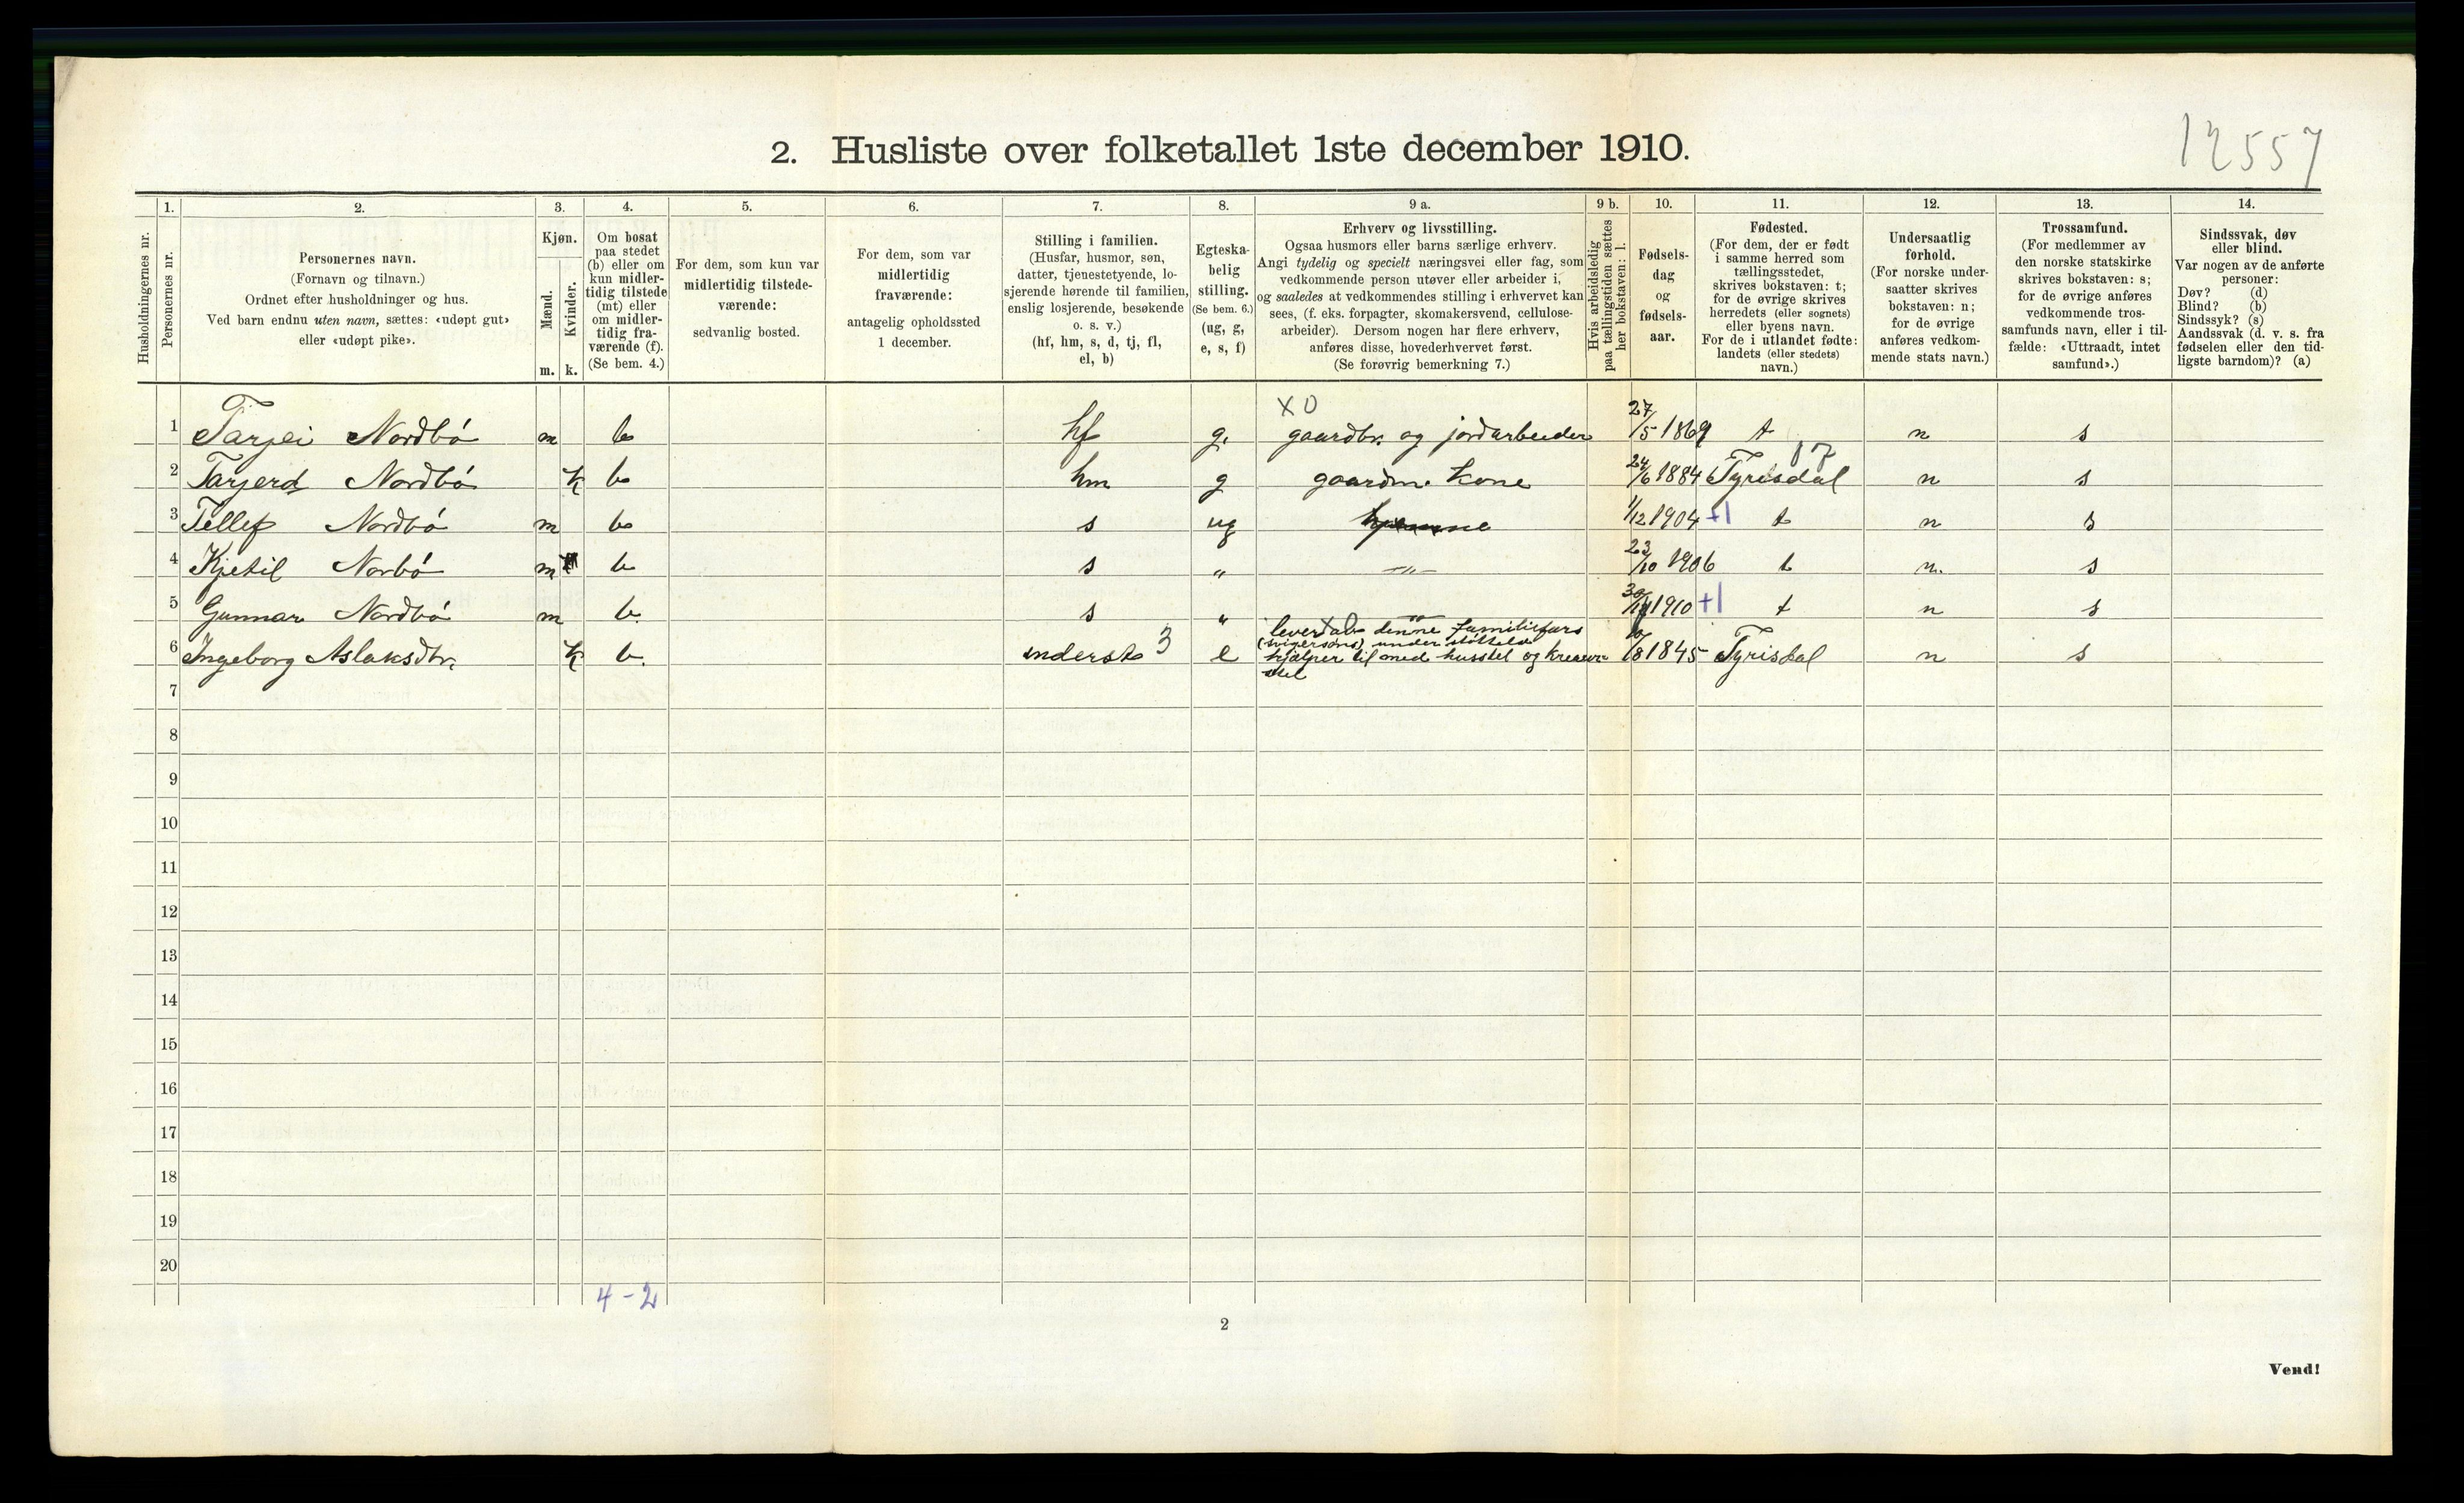 12557
2. Husliste over folketallet 1ste december 1910.
Husholdningernes nr.
1.
Personernes nr.
2.
Personernes navn.
(Fornavn og tilnavn.)
Ordnet efter husholdninger og hus.
Ved barn endnu uten navn, sættes: «udøpt gut»
eller «udøpt pike».
3.
Kjøn.
Mænd.
Kvinder.
m. k.
4.
Om bosat
paa stedet
(b) eller om
kun midler-
tidig tilstede
(mt) eller
om midler-
tidig fra-
værende (f).
(Se bem. 4.)
5.
For dem, som kun var
midlertidig tilstede-
værende:
sedvanlig bosted.
6.
For dem, som var
midlertidig
fraværende:
antagelig opholdssted
1 december.
7.
Stilling i familien.
(Husfar, husmor, søn,
datter, tjenestetyende, lo-
sjerende hørende til familien,
enslig losjerende, besøkende
o. s. v.)
(hf, hm, s, d, tj, fl,
el, b)
8.
Egteska-
belig
stilling.
(Se bem. 6.)
(ug, g,
e, s, f)
9 a.
Erhverv og livsstilling.
Ogsaa husmors eller barns særlige erhverv.
Angi tydelig og specielt næringsvei eller fag, som
vedkommende person utøver eller arbeider i,
og saaledes at vedkommendes stilling i erhvervet kan
sees, (f. eks. forpagter, skomakersvend, cellulose-
arbeider). Dersom nogen har flere erhverv,
anføres disse, hovederhvervet først.
(Se forøvrig bemerkning 7.)
9 b.
Hvis arbeidsledig
paa tællingstiden sættes
her bokstaven: l.
10.
Fødsels-
dag
og
fødsels-
aar.
11.
Fødested.
(For dem, der er født
i samme herred som
tællingsstedet,
skrives bokstaven: t;
for de øvrige skrives
herredets (eller sognets)
eller byens navn.
For de i utlandet fødte:
landets (eller stedets)
navn.)
12.
Undersaatlig
forhold.
(For norske under-
saatter skrives
bokstaven: n;
for de øvrige
anføres vedkom-
mende stats navn.)
13.
Trossamfund.
(For medlemmer av
den norske statskirke
skrives bokstaven: s;
for de øvrige anføres
vedkommende tros-
samfunds navn, eller i til-
fælde: «Uttraadt, intet
samfund».)
14.
Sindssvak, døv
eller blind.
Var nogen av de anførte
personer:
Døv? (d)
Blind? (b)
Sindssyk? (s)
Aandssvak (d. v. s. fra
fødselen eller den tid-
ligste barndom)? (a)
X 0
1 Tarjei Nordbö m b hf g. gaardbr. og jordarbeider 27/5 1869 t n s
17
2 Tarjerd Nordbö k b hm g gaardm. kone 24/6 1884 Tyrisdal n s
3 Tellef Nordbö m b s ug hjemme 1/12 1904 +1 t n s
4 Kjetil Norbö m b s „ —„— 23/10 1906 t n. s
5 Gunnar Nordbö m b. s „ —„— 30/11 1910 +1 t n s
6 Ingeborg Aslaksdtr. k b. inderst 3 e lever av denne familiefars
(svigersøns) understøttelse
hjælper til med husstel og kreatur
stel /8 1845 Tyrisdal n s
7
8
9
10
11
12
13
14
15
16
17
18
19
20
4 - 2
2
Vend!